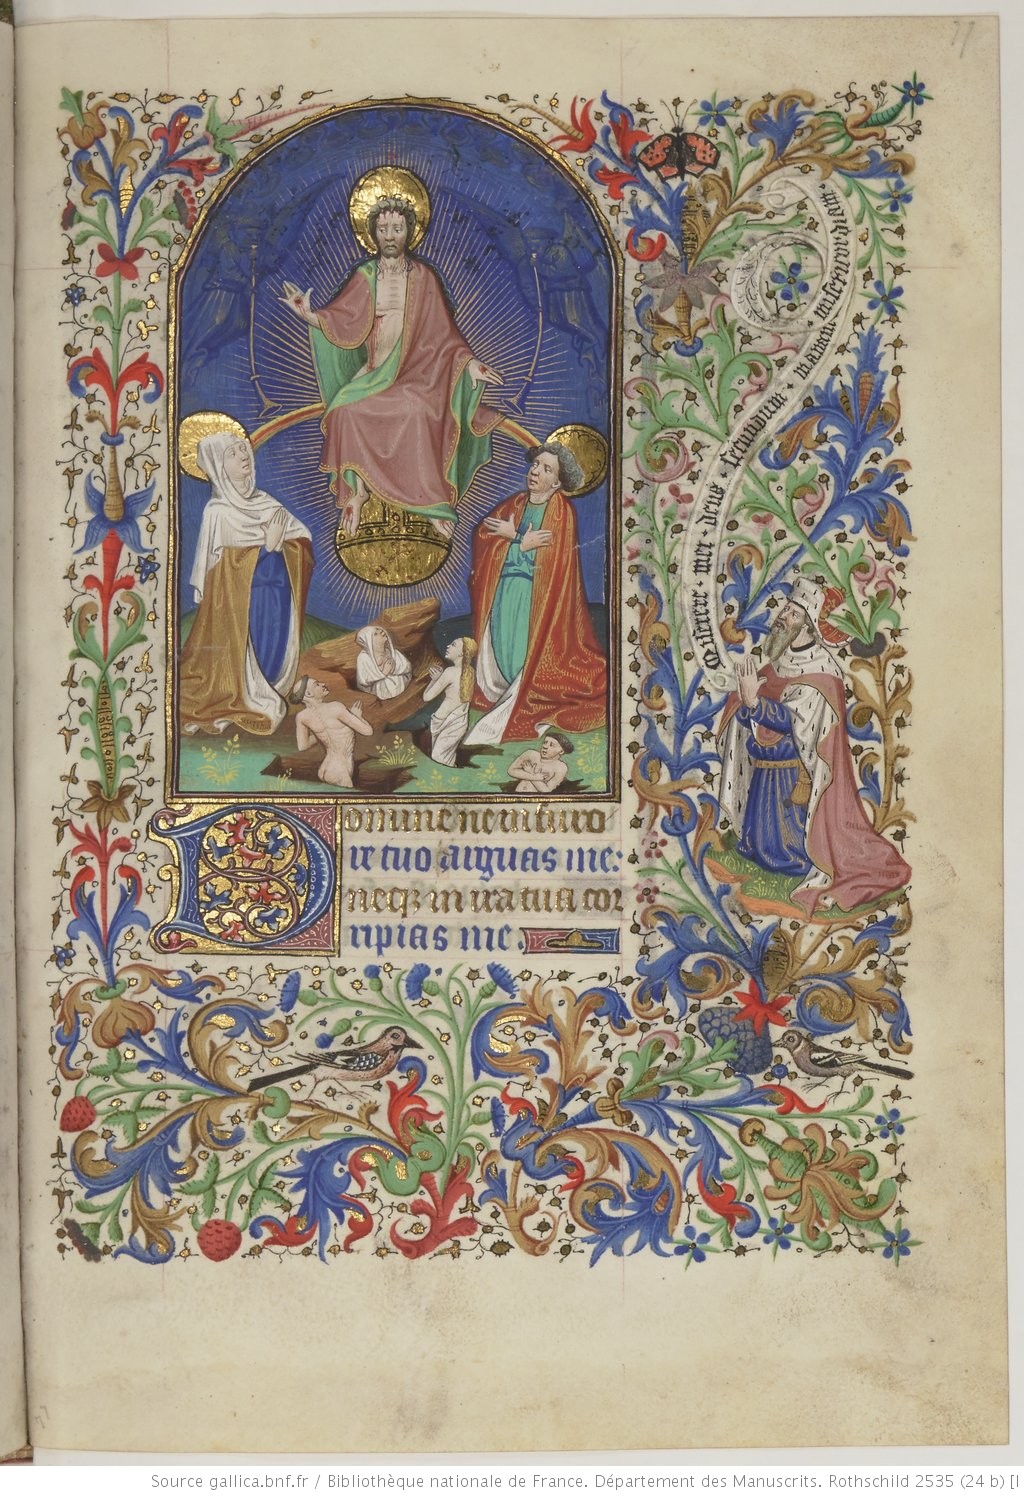 77
Miserere · mei · deus · secundum · magnam · misericordiam
Domine ne in furo
re tuo arguas me:
neq3 in ira tua cor
ripias me.
77
Source gallica.bnf.fr / Bibliothèque nationale de France. Département des Manuscrits. Rothschild 2535 (24 b) [I